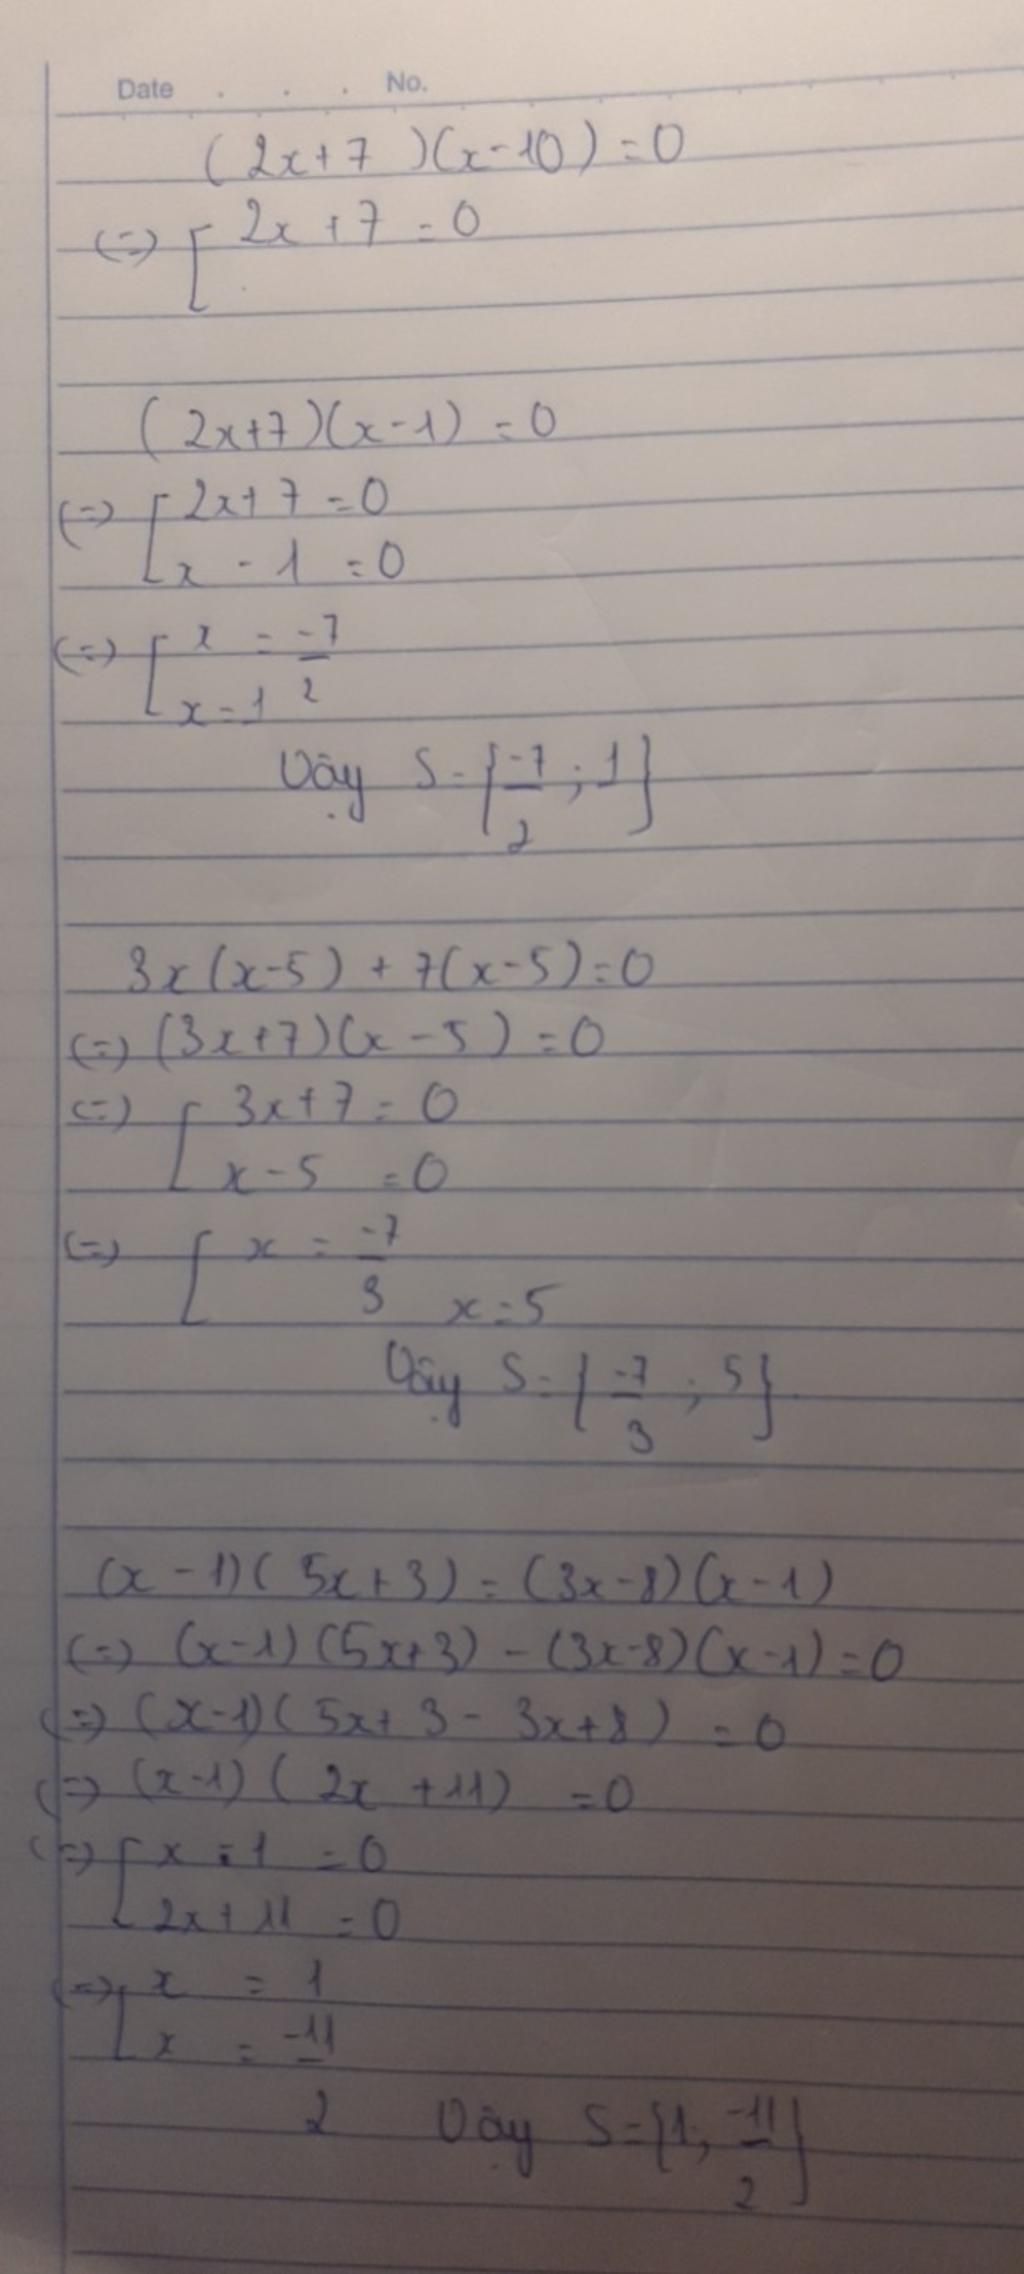 Date . . . No.
(2x+7)(x-10)=0
(=) [ 2x+7=0
(2x+7)(x-1)=0
(=) [ 2x+7=0
x-1=0
(=) [ x = -7/2
x=1
Vậy S={-7/2 ; 1}
3x(x-5)+7(x-5)=0
(=) (3x+7)(x-5)=0
(=) [ 3x+7=0
x-5=0
(=) [ x = -7/3
x=5
Vậy S={-7/3 ; 5}
(x-1)(5x+3)=(3x-8)(x-1)
(=) (x-1)(5x+3)-(3x-8)(x-1)=0
(=) (x-1)(5x+3-3x+8)=0
(=) (x-1)(2x+11)=0
(=) [ x-1=0
2x+11=0
(=) [ x = 1
x = -11/2
Vậy S={1; -11/2}